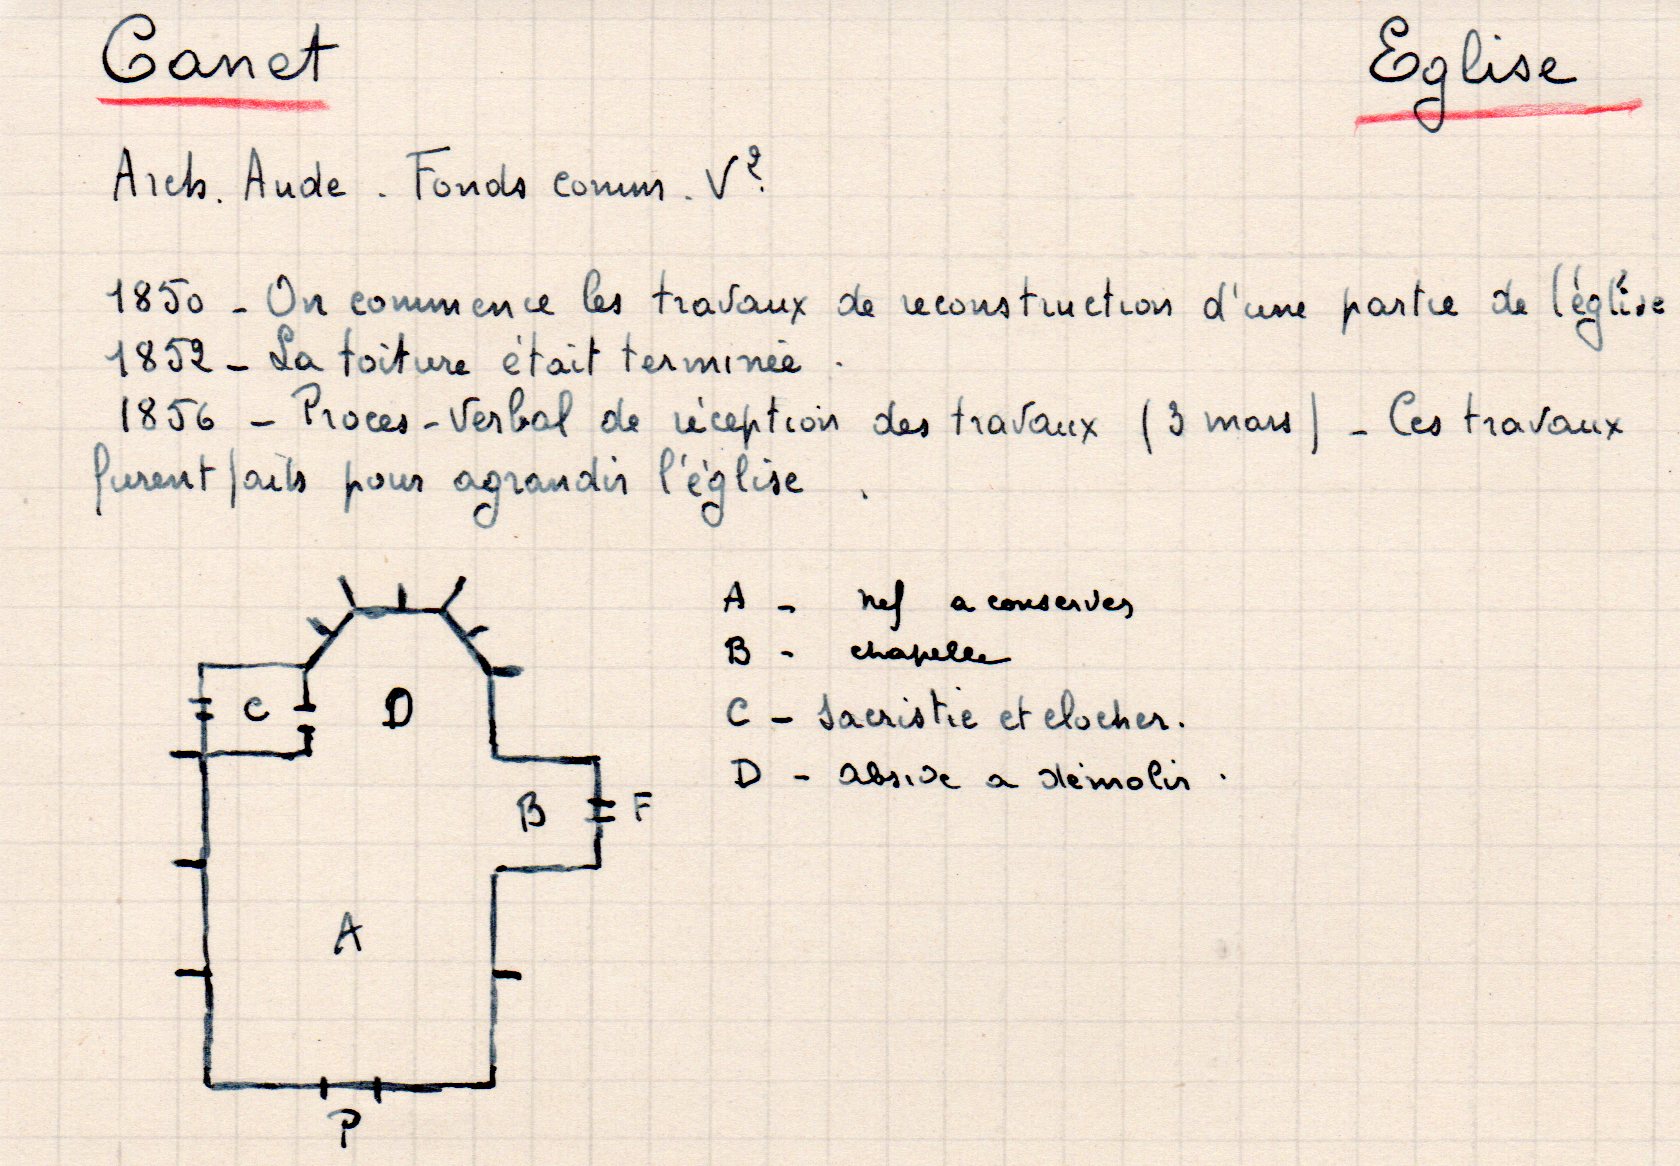 Canet Eglise
Arch. Aude. Fonds comm. V?
1850 - On commence les travaux de reconstruction d'une partie de l'église
1852 - La toiture était terminée.
1856 - Proces-Verbal de réception des travaux (3 mars) - Ces travaux
furent faits pour agrandir l'église.
A - nef a conserver
B - chapelle
C - Sacristie et clocher.
D - abside a démolir.
C D
B F
A
P